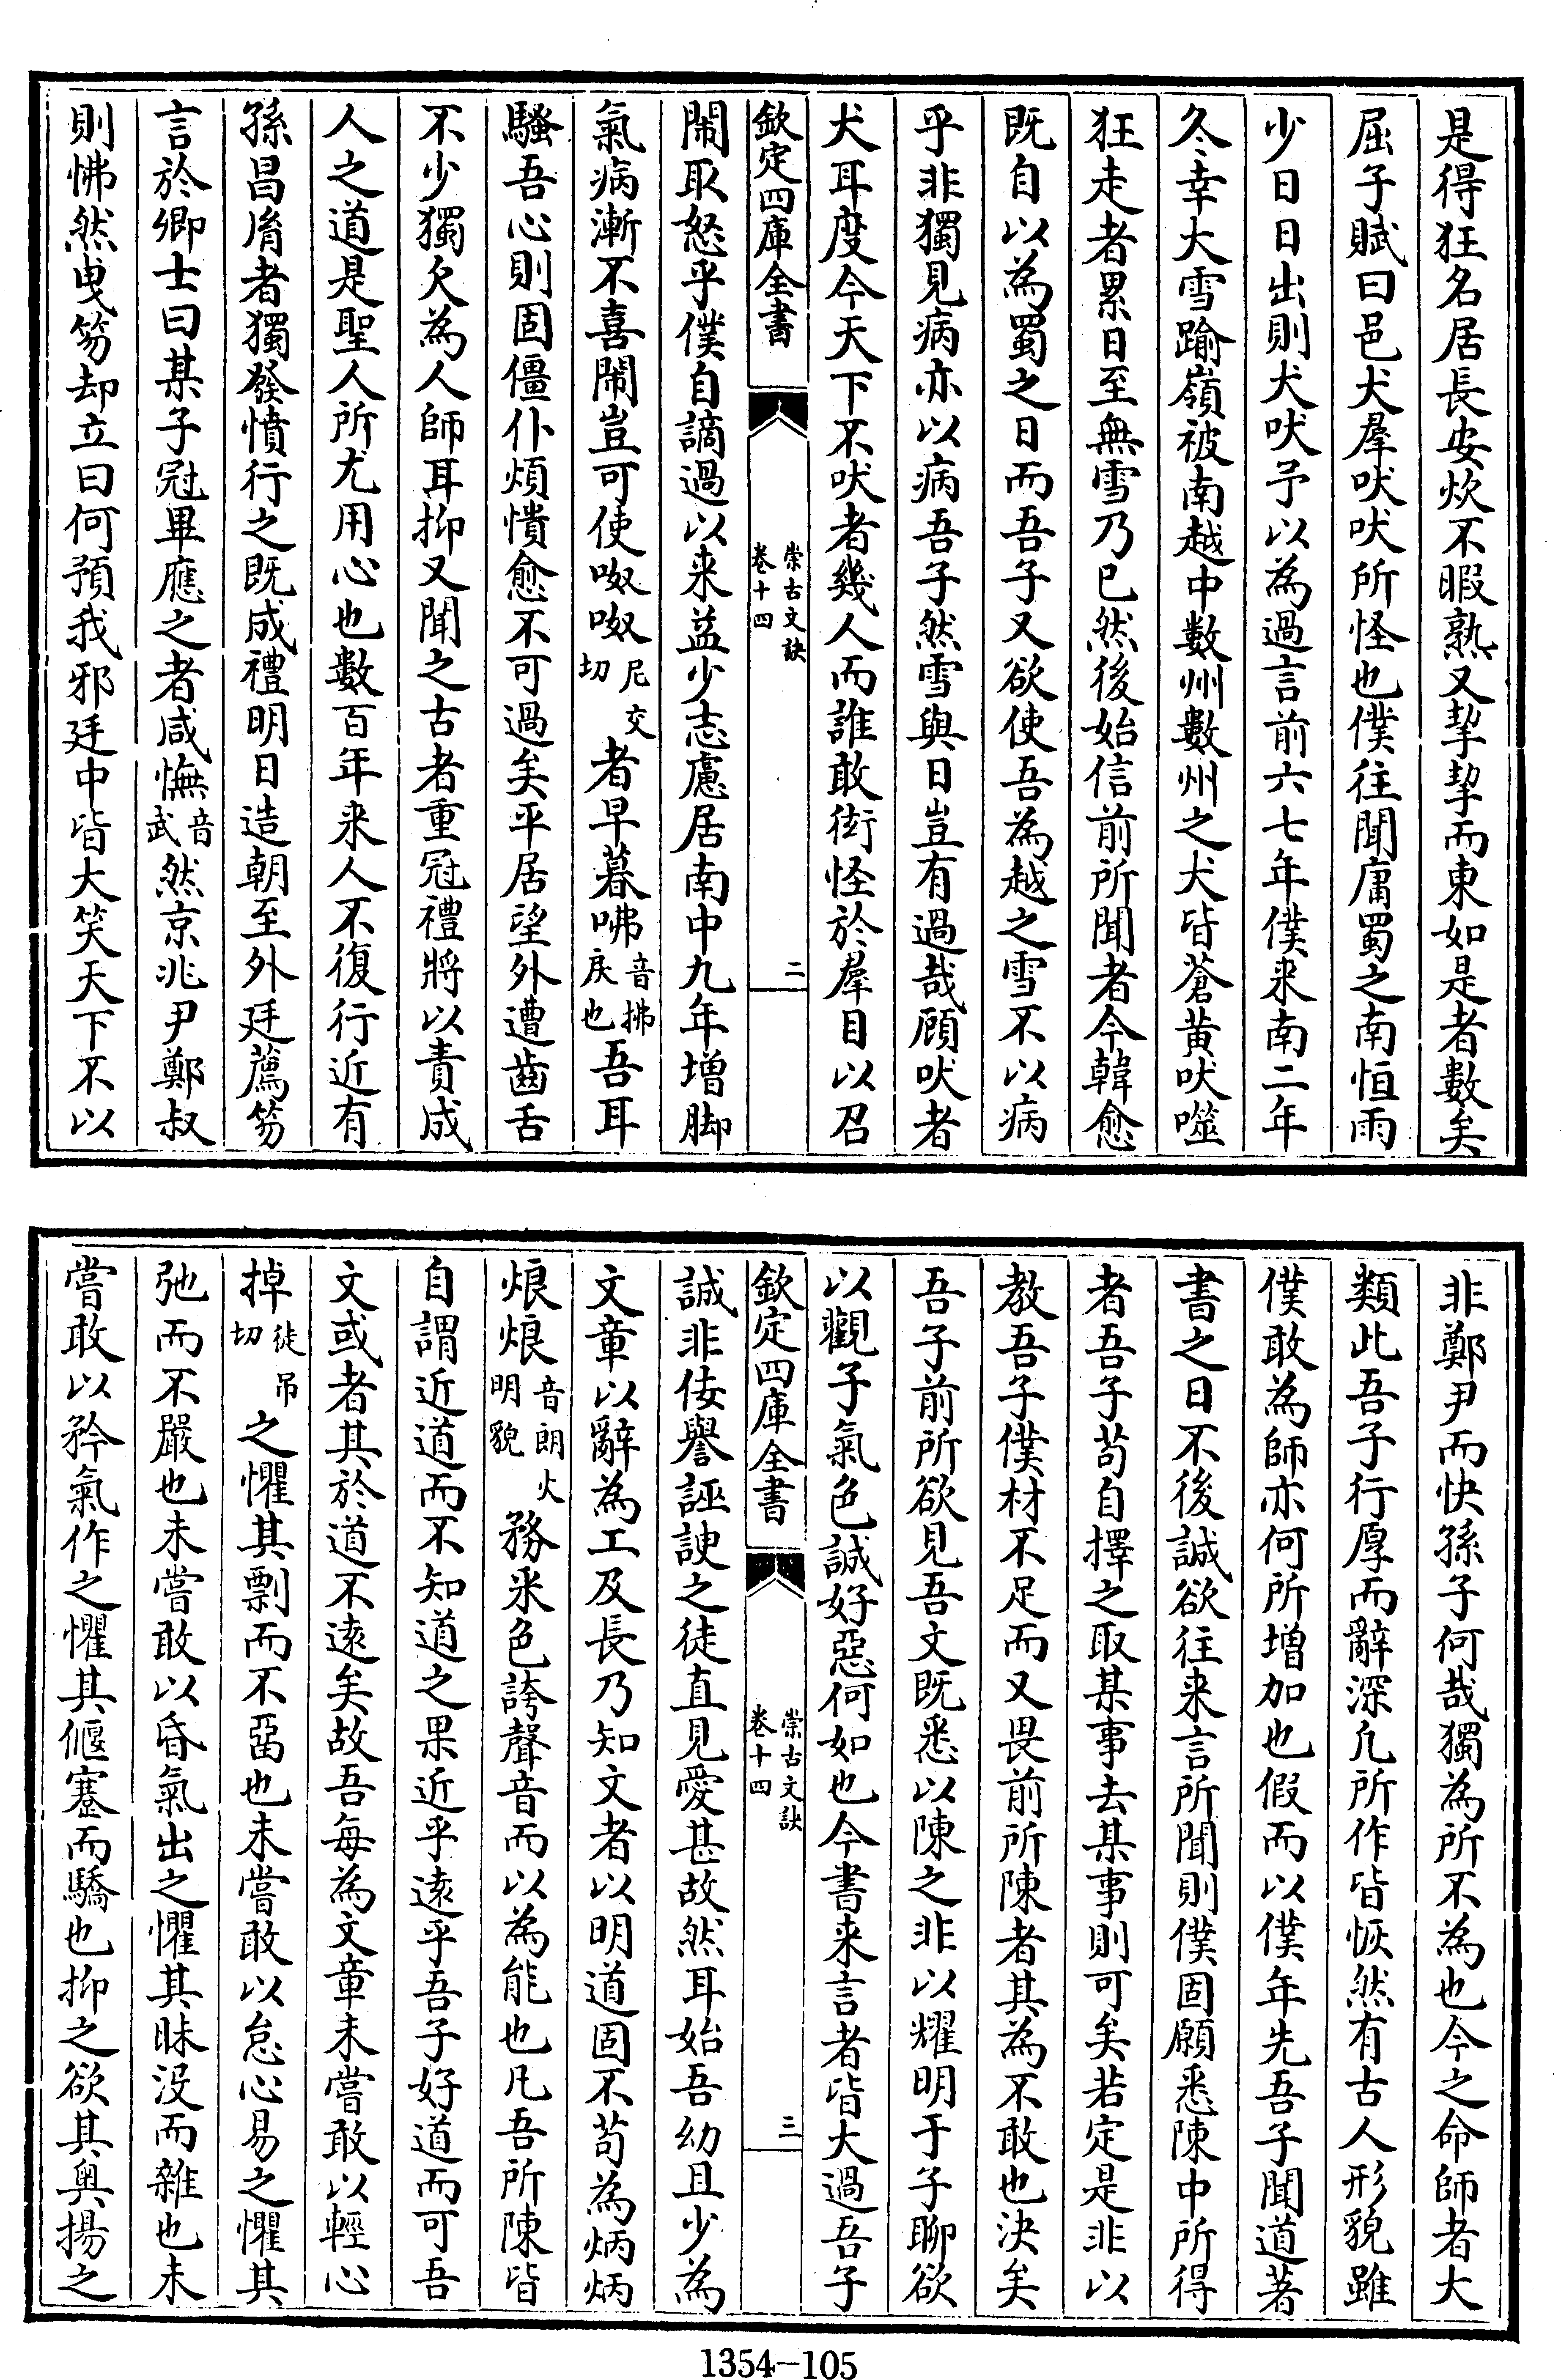 是得狂名居長安炊不暇熟又挈挈而東如是者數矣
屈子賦曰邑犬羣吠吠所怪也僕往聞庸蜀之南恒雨
少日日出則犬吠予以為過言前六七年僕来南二年
冬幸大雪踰嶺被南越中數州數州之犬皆蒼黄吠噬
狂走者累日至無雪乃已然後始信前所聞者今韓愈
既自以為蜀之日而吾子又欲使吾為越之雪不以病
乎非獨見病亦以病吾子然雪與日豈有過哉顧吠者
犬耳度今天下不吠者幾人而誰敢衒怪於羣目以召
欽定四庫全書 崇古文訣 卷十四 二
閙取怒乎僕自謫過以来益少志慮居南中九年增脚
氣病漸不喜閙豈可使呶呶尼交切者早暮咈音拂戾也吾耳
騷吾心則固僵仆煩憒愈不可過矣平居望外遭齒舌
不少獨欠為人師耳抑又聞之古者重冠禮將以責成
人之道是聖人所尤用心也數百年来人不復行近有
孫昌胤者獨發憤行之既成禮明日造朝至外廷薦笏
言於卿士曰某子冠畢應之者咸憮音武然京兆尹鄭叔
則怫然曳笏却立曰何預我邪廷中皆大笑天下不以
非鄭尹而快孫子何哉獨為所不為也今之命師者大
類此吾子行厚而辭深凡所作皆恢然有古人形貌雖
僕敢為師亦何所增加也假而以僕年先吾子聞道著
書之日不後誠欲往来言所聞則僕固願悉陳中所得
者吾子苟自擇之取某事去某事則可矣若定是非以
教吾子僕材不足而又畏前所陳者其為不敢也決矣
吾子前所欲見吾文既悉以陳之非以耀明于子聊欲
以觀子氣色誠好惡何如也今書来言者皆大過吾子
欽定四庫全書 崇古文訣 卷十四 三
誠非佞譽誣諛之徒直見愛甚故然耳始吾幼且少為
文章以辭為工及長乃知文者以明道固不苟為炳炳
烺烺音朗火明貌務采色誇聲音而以為能也凡吾所陳皆
自謂近道而不知道之果近乎遠乎吾子好道而可吾
文或者其於道不遠矣故吾每為文章未嘗敢以輕心
掉徒吊切之懼其剽而不畱也未嘗敢以怠心易之懼其
弛而不嚴也未嘗敢以昏氣出之懼其昧没而雜也未
嘗敢以矜氣作之懼其偃蹇而驕也抑之欲其奥揚之
1354-105